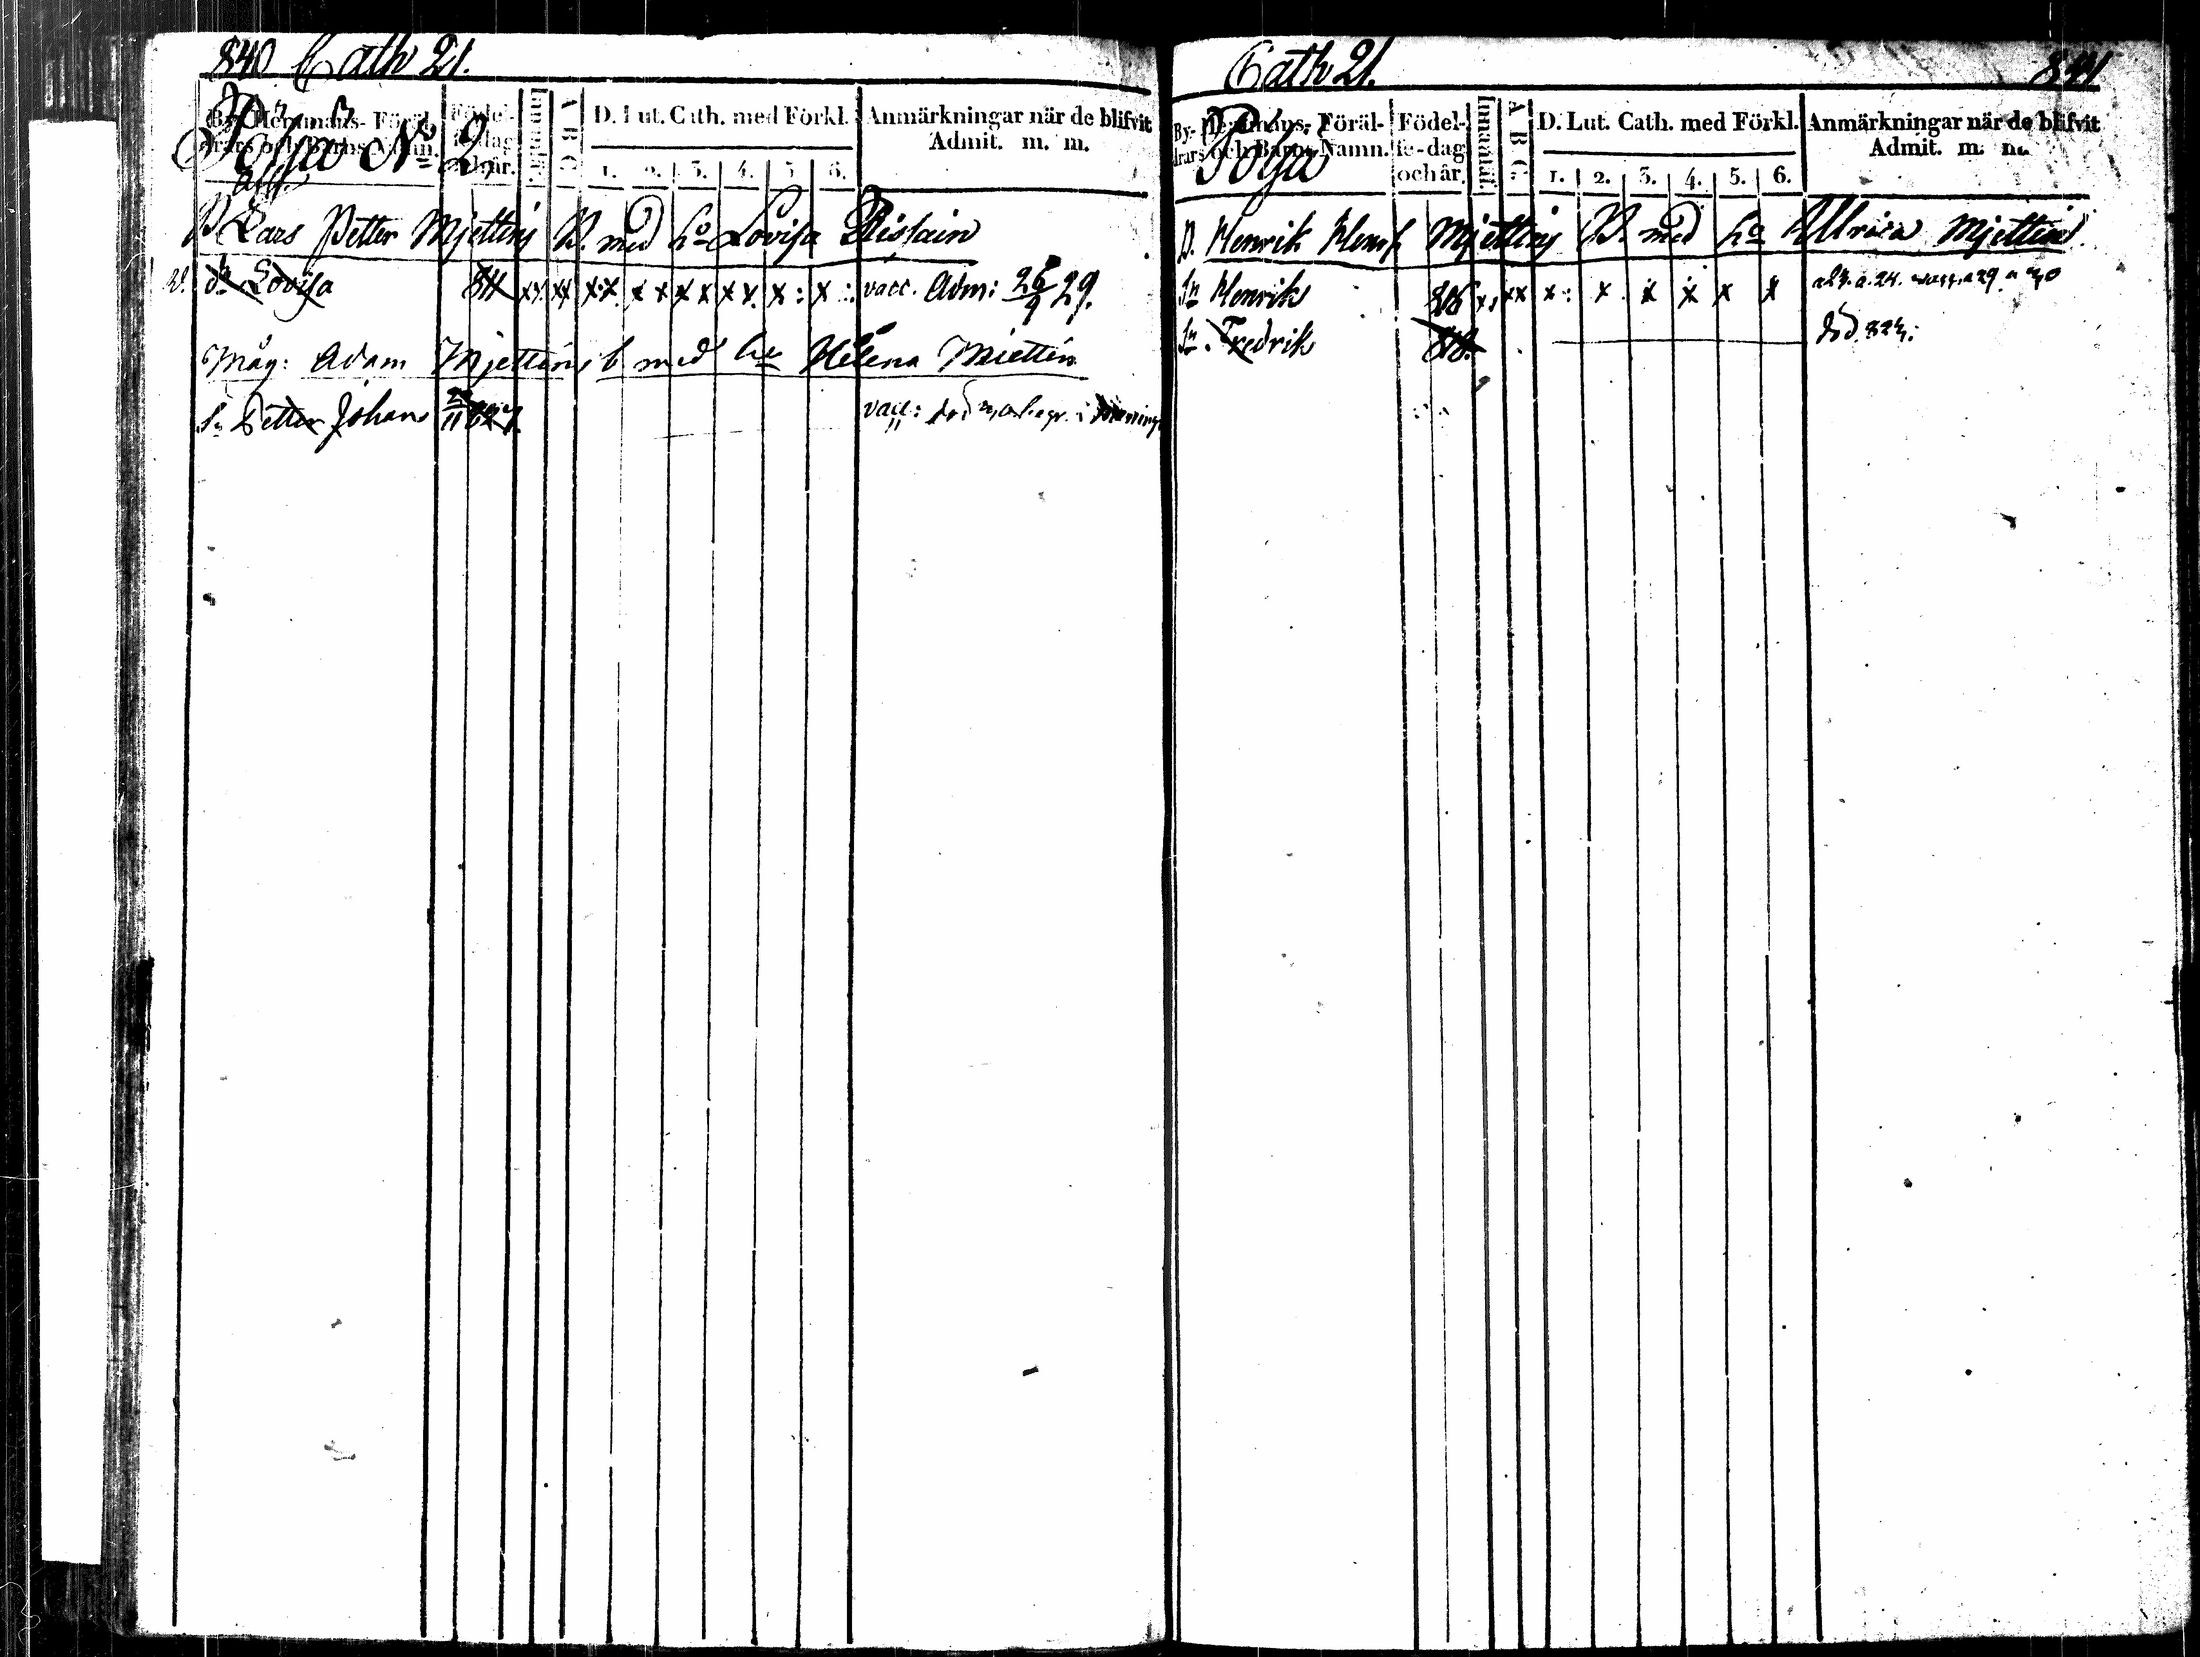 840 Cath 21.
By- Hemmans- Föräl-
drars och Barns Namn.
Födel-
se-dag
och år.
Innanläs.
A B C
D. Lut. Cath. med Förkl.
1. 2. 3. 4. 5. 6.
Anmärkningar när de blifvit
Admit. m. m.
Pohja No 2,
Lars Petter Mjettinj B. med ho Lovisa Ristain
dr Lovisa 814 xx xx xx x x x x x x. x : x : vacc. Adm: 26/9 29.
Måg: Adam Mjettinj b med ho Helena Miettin
Sn Petter Johan 11 827. vacc: död
Cath 21. 841
By- Hemmans- Föräl-
drars och Barns Namn.
Födel-
se-dag
och år.
Innanläs.
A B C
D. Lut. Cath. med Förkl.
1. 2. 3. 4. 5. 6.
Anmärkningar när de blifvit
Admit. m. m.
Pohja
D. Henrik Henr Mjettinj B. med ho Ulrica Mjettin
Sn Henrik 816 x x xx x : x . x x x x a 24. a 29 a 30
Sn. Fredrik 818. död 823: